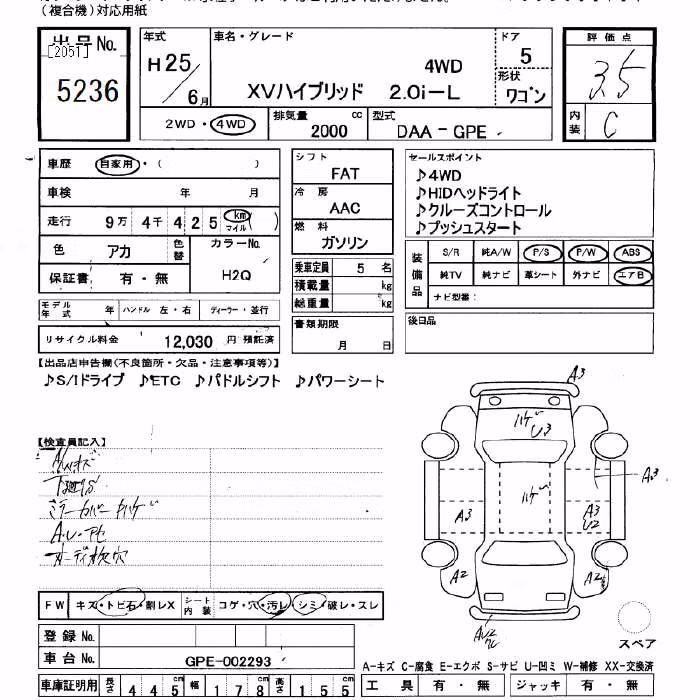 （複合機）対応用紙
出品No.
[2051]
5236
年式
H25/6月
車名・グレード
4WD
XVハイブリッド 2.0i-L
ドア
5
形状
ワゴン
評価点
3.5
内装
C
2WD・4WD
排気量 cc
2000
型式
DAA-GPE
車歴 自家用・（ ）
車検 年 月
走行 9万4千425 km マイル（ ）
色 アカ
色替
カラーNo.
H2Q
保証書 有・無
モデル年式 年
ハンドル 左・右
ディーラー・並行
リサイクル料金 12,030 円 預託済
シフト
FAT
冷房
AAC
燃料
ガソリン
乗車定員 5 名
積載量 kg
総重量 kg
書類期限
月 日
セールスポイント
♪4WD
♪HIDヘッドライト
♪クルーズコントロール
♪プッシュスタート
装備品
S/R 純A/W P/S P/W ABS
純TV 純ナビ 革シート 外ナビ エアB
ナビ型番：
後日品
【出品店申告欄（不良箇所・欠品・注意事項等）】
♪S/Iドライブ ♪ETC ♪パドルシフト ♪パワーシート
【検査員記入】
A.U.アセ
A3
ハゲ
U3
A3
ハゲ
A3
A3
U2
A2
A2
FW キズ・トビ石・割レX
シート内装 コゲ・穴・汚レ・シミ・破レ・スレ
スペア
登録No.
車台No. GPE-002293
A-キズ C-腐食 E-エクボ S-サビ U-凹ミ W-補修 XX-交換済
車庫証明用 長さ 445 幅 178 高さ 155
工具 有・無 ジャッキ 有・無